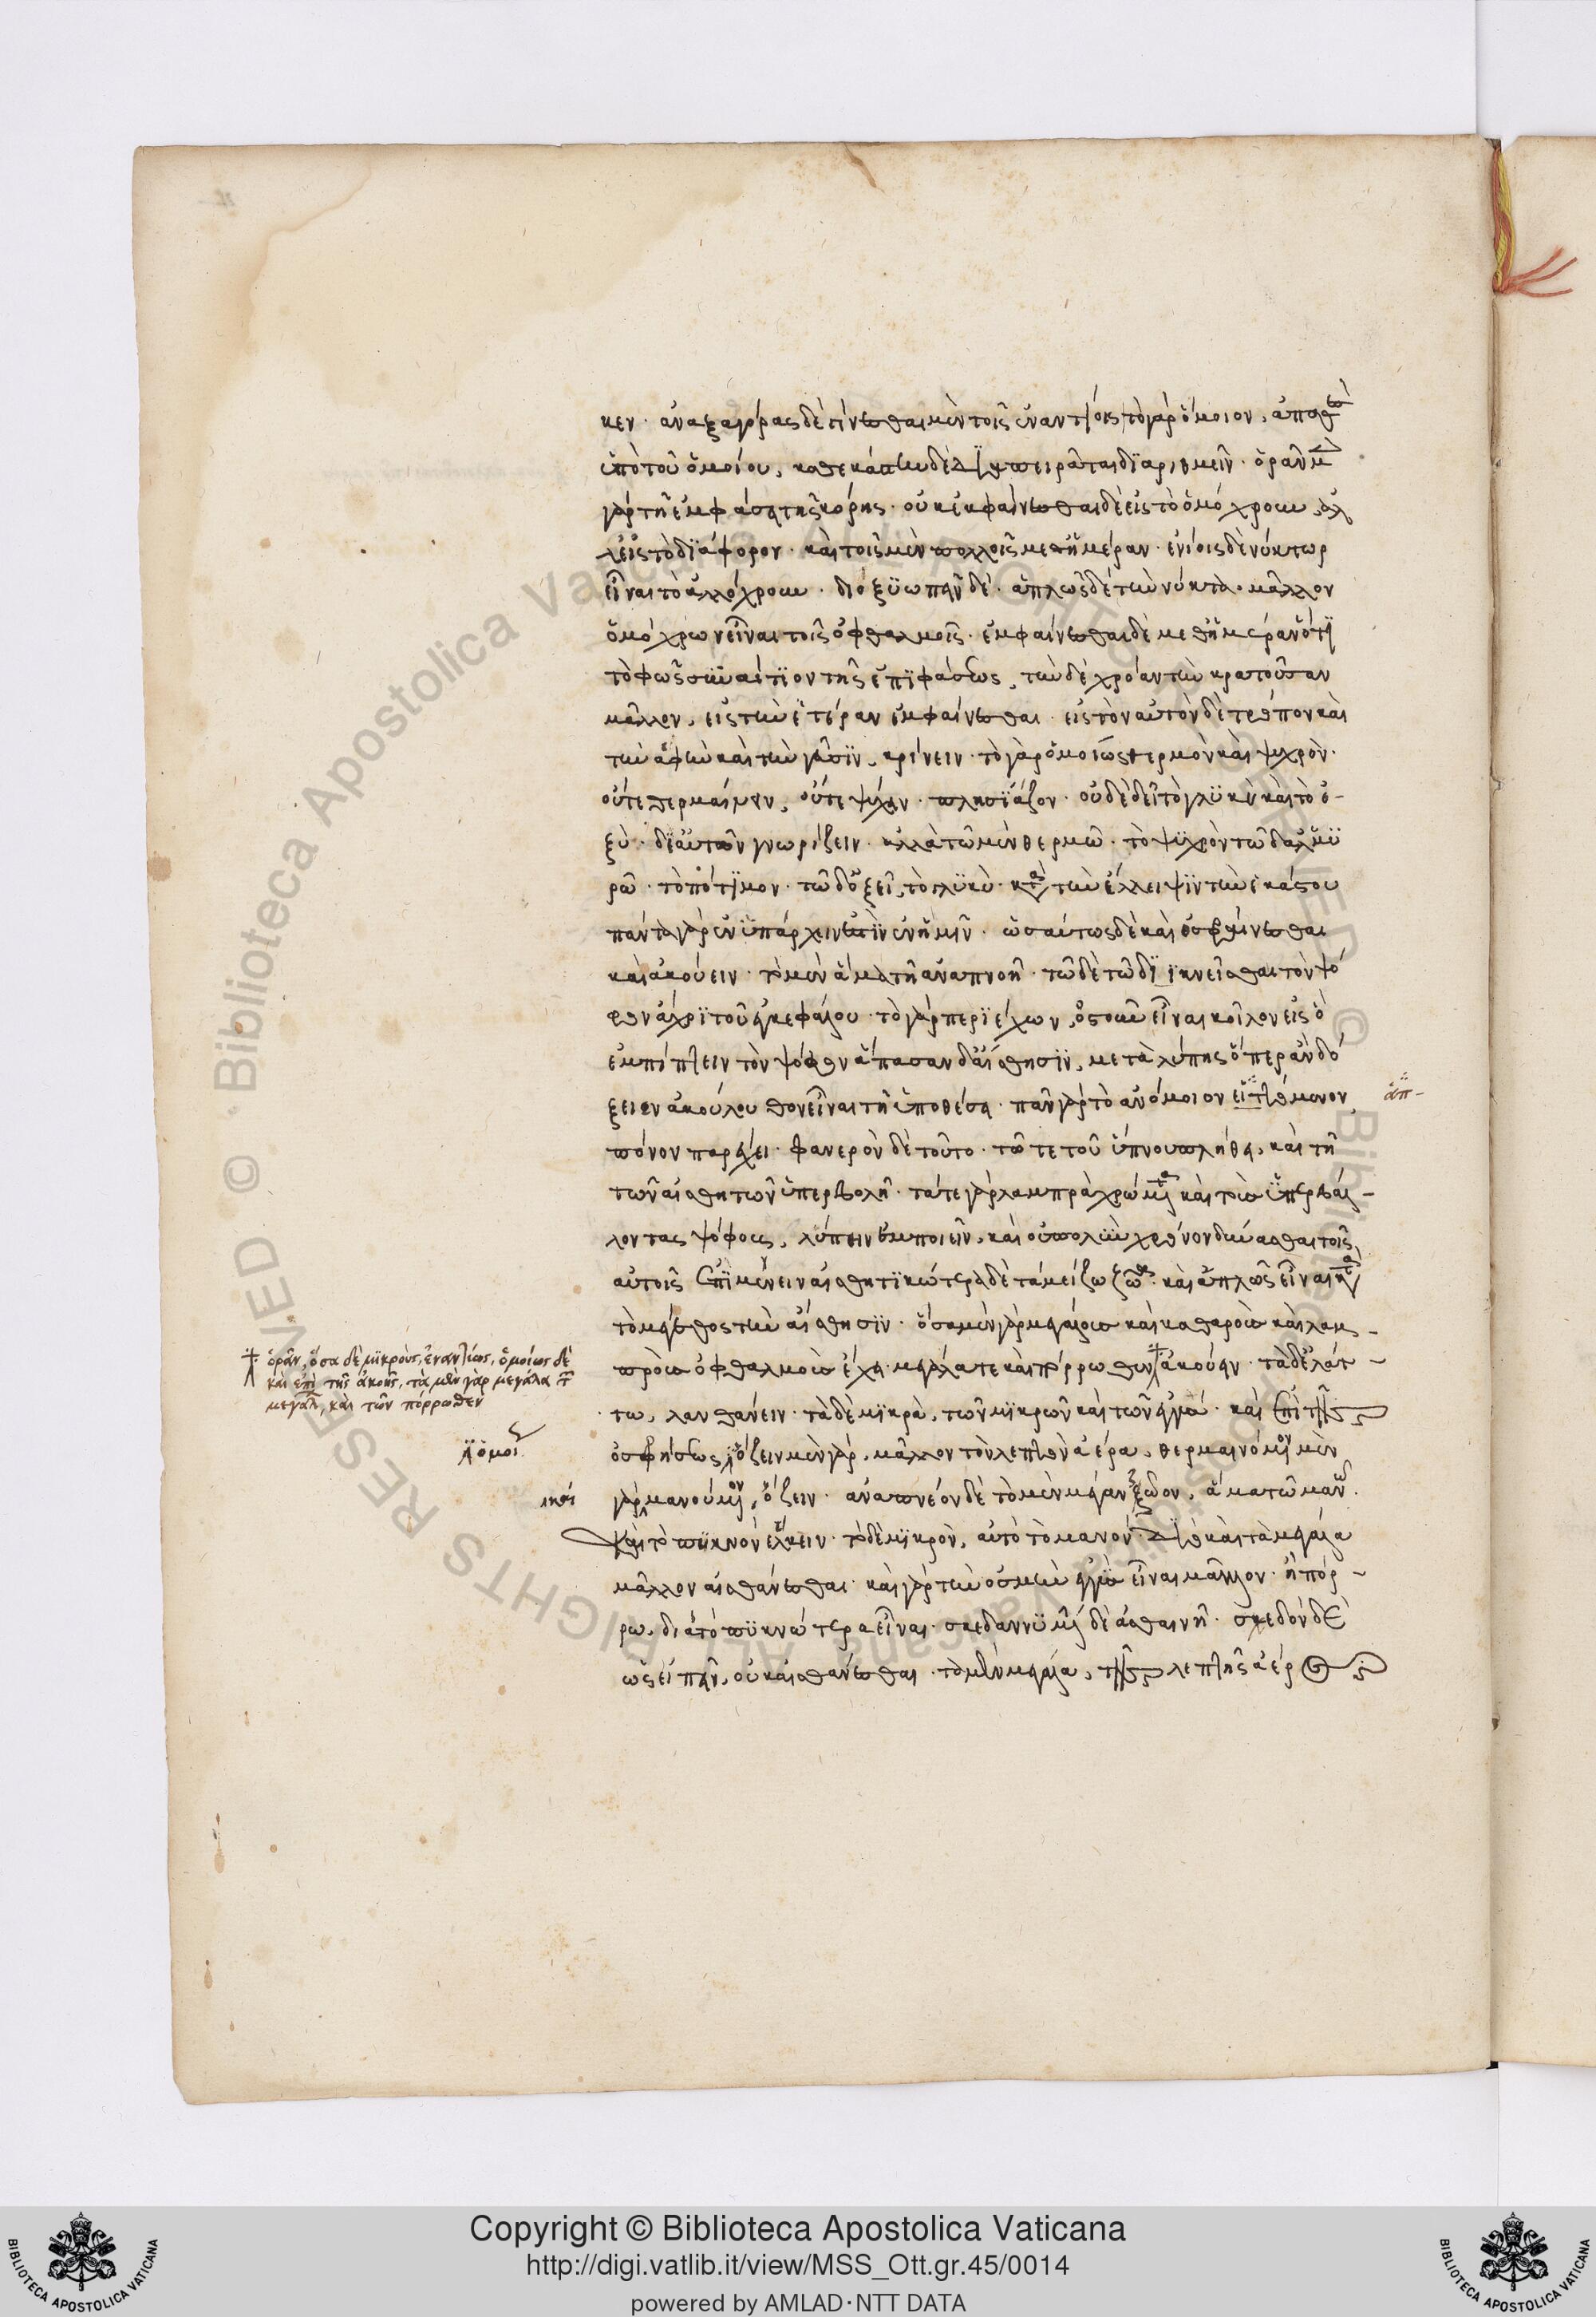 κεν· ἀναξαγόρας δὲ γίνεσθαι μὲν τοῖς ἐναντίοις· τὸ γὰρ ὅμοιον, ἀπαθὲς
ὑπὸ τοῦ ὁμοίου, καθ ἑκάστην δὲ δὴ πειρᾶται διαριθμεῖν· ὁρᾶν μὲν
γὰρ τῆ ἐμφάσει τῆς κόρης· οὐκ ἐκφαίνεσθαι δὲ εἰς τὸ ὁμόχρουν, ἀλ
λ εἰς τὸ διάφορον· καὶ τοῖς μὲν πολλοῖς μεθ ἡμέραν· ἐνίοις δὲ νύκτωρ
εἶναι τὸ ἀλλόχρουν· διὸ ξυωπεῖν δέ· ἁπλῶς δὲ τὴν νύκτα μᾶλλον
ὁμόχρων εἶναι τοῖς ὀφθαλμοῖς· ἐμφαίνεσθαι δὲ μεθ ἡμέραν ὅτι
τὸ φῶς συναίτιον τῆς ἐπιφάσεως, τὴν δὲ χρόαν τὴν κρατοῦσαν
μᾶλλον, εἰς τὴν ἑτέραν ἐμφαίνεσθαι· εἰς τὸν αὐτὸν δὲ τρόπον καὶ
τὴν ἁφὴν καὶ τὴν γεῦσιν, κρίνειν· τὸ γὰρ ὁμοίως θερμὸν καὶ ψυχρὸν·
οὔτε θερμαίνειν, οὔτε ψύχειν· πλησιάζον· οὐδὲ δεῖ τὸ γλυκὺ καὶ τὸ ὀ-
ξὺ· δι αὐτῶν γνωρίζειν· ἀλλὰ τῶ μὲν θερμῶ· τὸ ψυχρὸν τῶ δ ἁλμυ
ρῶ· τὸ πότιμον· τῶ δ ὀξεῖ, τὸ γλυκὺ· κατὰ τὴν ἔλλειψιν τὴν ἑκάστου
πάντα γὰρ ἐνυπάρχειν ἐστὶν ἐν ἡμῖν· ὡσαύτως δὲ καὶ ὀσφραίνεσθαι
καὶ ἀκούειν· τὸ μὲν ἅμα τῆ ἀναπνοῆ· τῶ δὲ τῶ διϊκνεῖσθαι τὸν ψό
φον ἄχρι τοῦ ἐγκεφάλου· τὸ γὰρ περιέχων, ὀστοῦν εἶναι κοῖλον εἰς ὃ
ἐμπίπτειν τὸν ψόφον ἅπασαν δ αἴσθησιν, μετὰ λύπης ὅπερ ἂν δό
ξειεν ἀκόλουθον εἶναι τῆ ὑποθέσει· πᾶν γὰρ τὸ ἀνόμοιον εἱπτόμενον
πόνον παρέχει· φανερὸν δὲ τοῦτο· τῶ τε τοῦ ὕπνου πλήθει, καὶ τῆ
τῶν αἰσθητῶν ὑπερβολῆ· τά τε γὰρ λαμπρὰ χρώματα καὶ τοὺς ὑπερβάλ-
λοντας ψόφους, λύπην ἐμποιεῖν, καὶ οὐ πολὺν χρόνον δύνασθαι τοῖς
αὐτοῖς ἐπιμένειν αἰσθητικώτερα δὲ τὰ μείζω ζῶα· καὶ ἁπλῶς εἶναι κατὰ
τὸ μέγεθος τὴν αἴσθησιν· ὅσα μὲν γὰρ μεγάλους καὶ καθαροὺς καὶ λαμ-
προὺς ὀφθαλμοὺς ἔχει· μεγάλα τε καὶ πόρρωθεν ἀκούειν· τὰ δ ἐλάτ-
τω, λανθάνειν· τὰ δὲ μικρὰ, τῶν μικρῶν καὶ τῶν ἐγγύς· καὶ ἐπὶ τῆς
ὀσφρήσεως, ὄζειν μὲν γὰρ, μᾶλλον τὸν λεπτὸν ἀέρα, θερμαινόμενον μὲν
γὰρ μανούμενον, ὄζειν· ἀναπνέον δὲ τὸ μὲν μέγα ζῶον, ἅμα τῶ μανῶ
καὶ τὸ πυκνὸν ἕλκειν· τὸ δὲ μικρὸν, αὐτὸ τὸ μανόν· διὸ καὶ τὰ μεγάλα
μᾶλλον αἰσθάνεσθαι· καὶ γὰρ τὴν ὀσμὴν ἐγγὺς εἶναι μᾶλλον· ἢ πόρ-
ρω, διὰ τὸ πυκνώτερα εἶναι· σκεδαννυμένη δὲ ἀσθαινῆ· σχεδὸν δὲ
ὡς εἰπεῖν, οὐκ αἰσθάνεσθαι· τὸ μὲν μεγάλα, τῆς λεπτῆς ἀέρος
ἁπ-
ὁρᾶν, ὅσα δὲ μικροὺς, ἐναντίως, ὁμοίως δὲ
καὶ ἐπὶ τῆς ἀκοῆς, τὰ μὲν γὰρ μεγάλα τῶν
μεγάλων, καὶ τῶν πόρρωθεν
ὁμοίως
καὶ